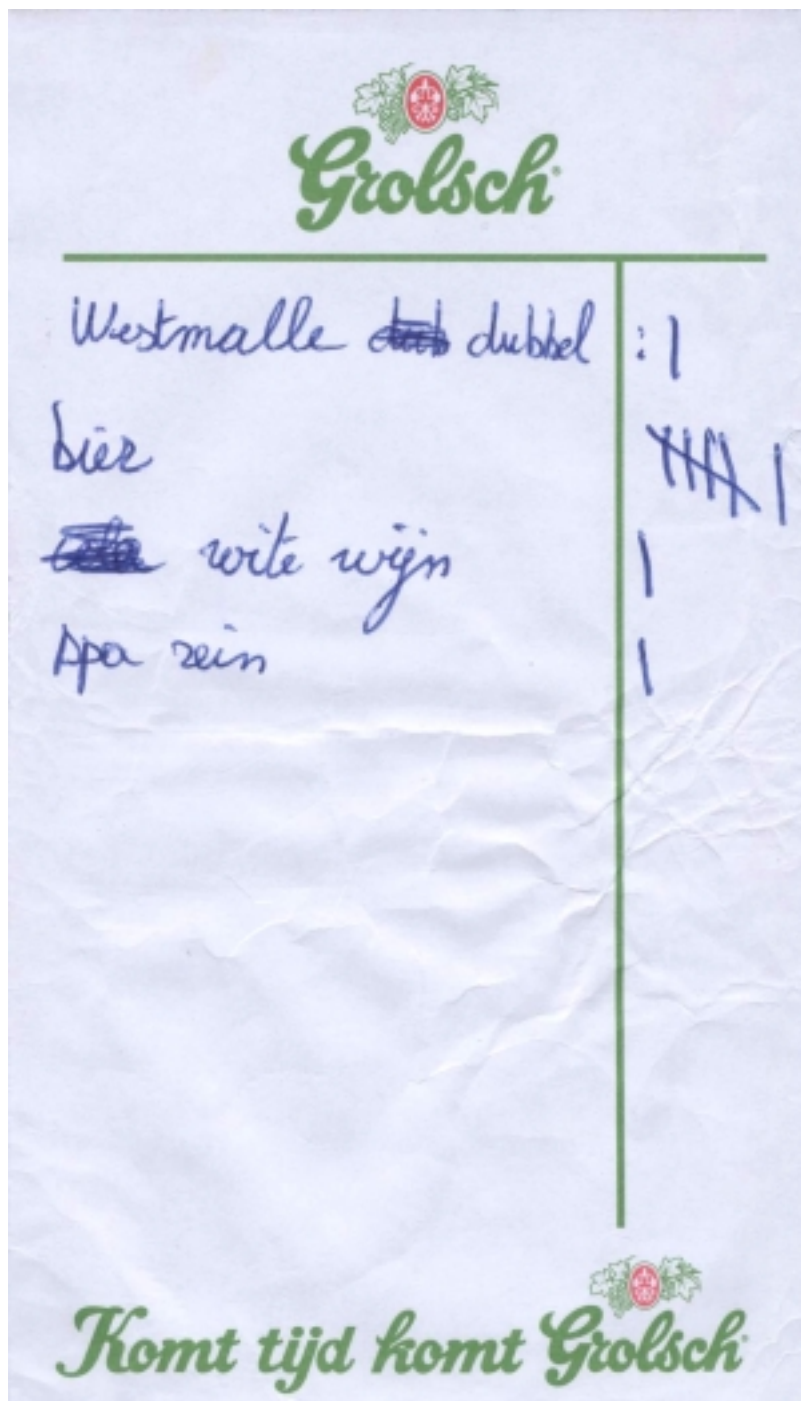 Grolsch
Westmalle dubbel :|
bier |||| |
wite wijn |
spa rein |
Komt tijd komt Grolsch